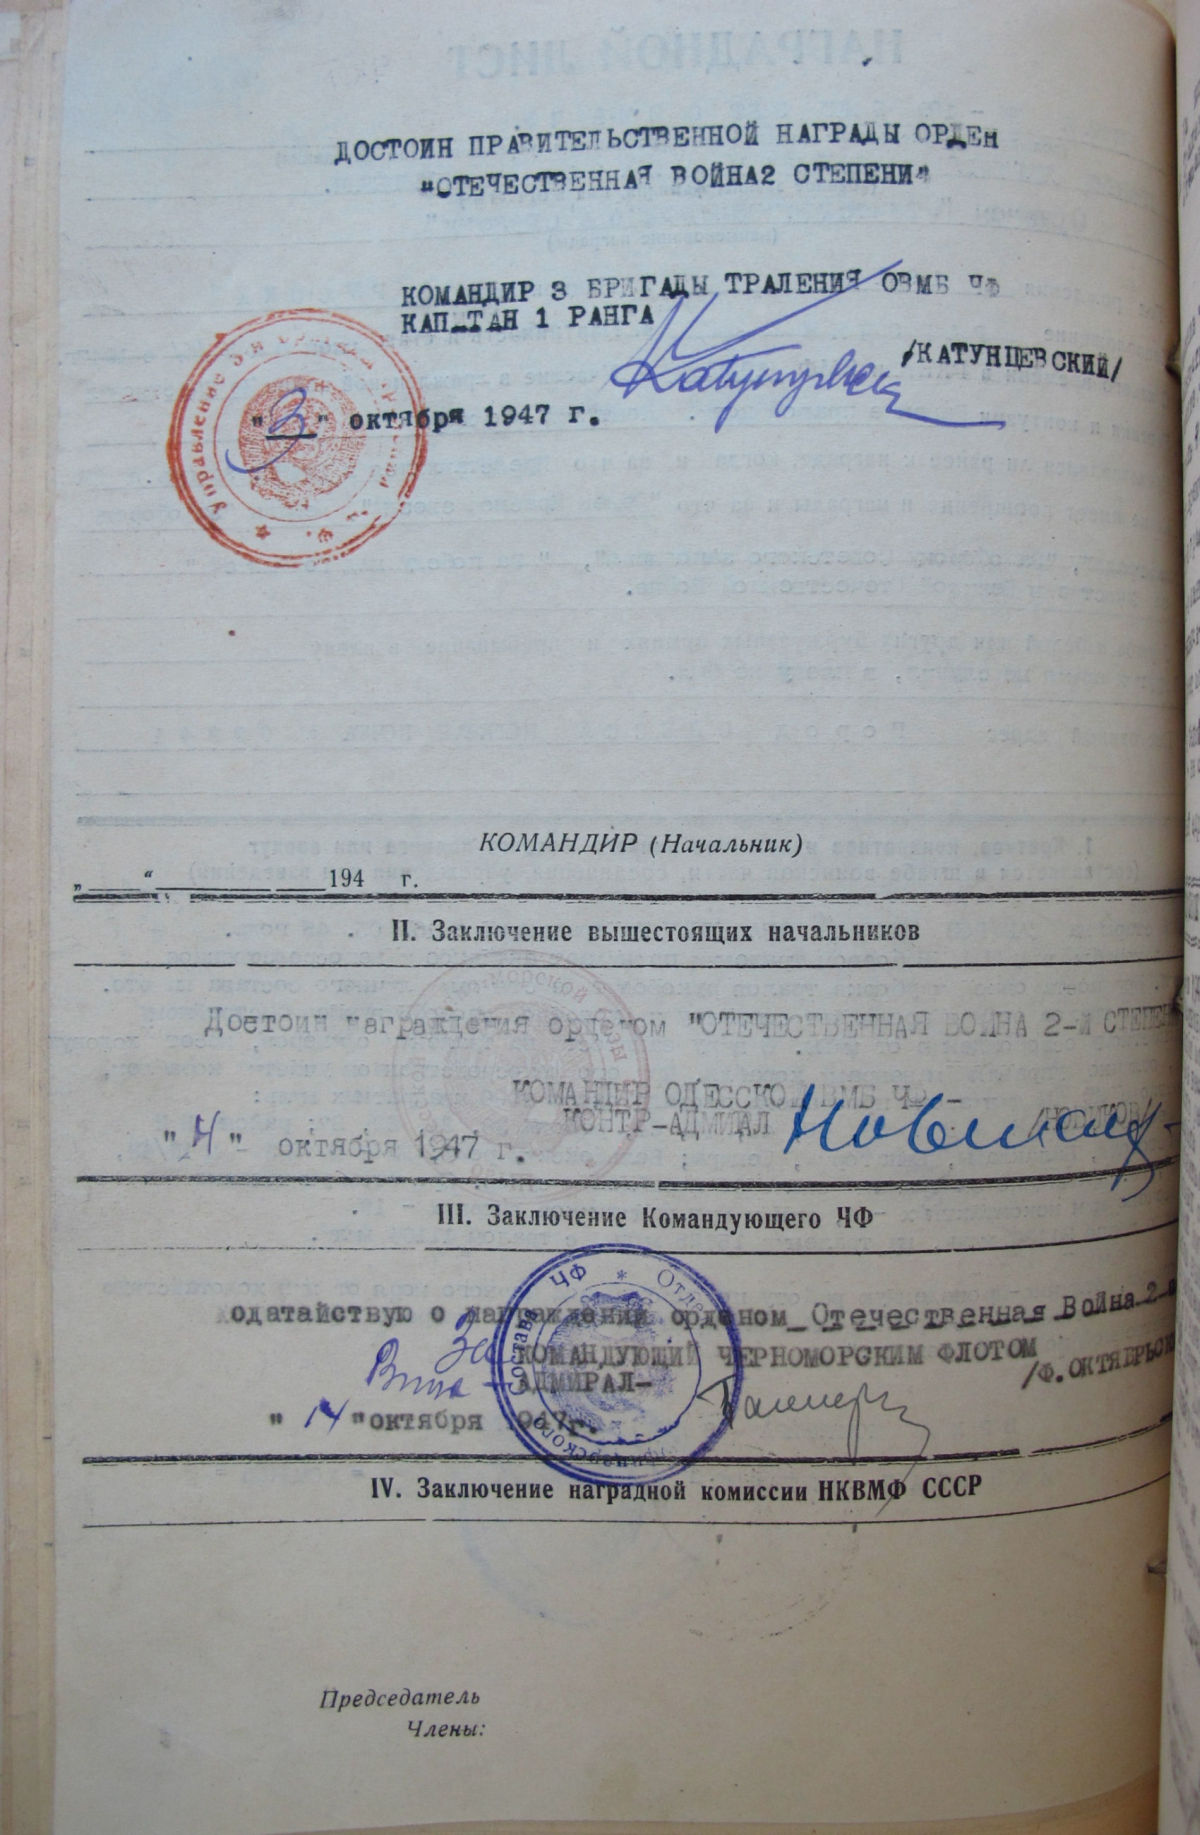 ДОСТОИН ПРАВИТЕЛЬСТВЕННОЙ НАГРАДЫ ОРДЕН
"ОТЕЧЕСТВЕННАЯ ВОЙНА2 СТЕПЕНИ"
КОМАНДИР 3 БРИГАДЫ ТРАЛЕНИЯ ОВМБ ЧФ
КАПИТАН 1 РАНГА
/КАТУНЦЕВСКИЙ/
"3" октября 1947 г.
КОМАНДИР (Начальник)
„ “ 194 г.
II. Заключение вышестоящих начальников
Достоин награждения орденом "ОТЕЧЕСТВЕННАЯ ВОЙНА 2-Й СТЕПЕН
КОМАНДИР ОДЕССКОЙ ВМБ ЧФ -
КОНТР-АДМИАЛ /НОВИКОВ/
"4" октября 1947 г.
III. Заключение Командующего ЧФ
одатайствую о награждении орденом Отечественная Война 2-й
КОМАНДУЮЩИЙ ЧЕРНОМОРСКИМ ФЛОТОМ
АДМИРАЛ- /Ф.ОКТЯБРЬСК
"14" октября 1947г.
IV. Заключение наградной комиссии НКВМФ СССР
Председатель
Члены: